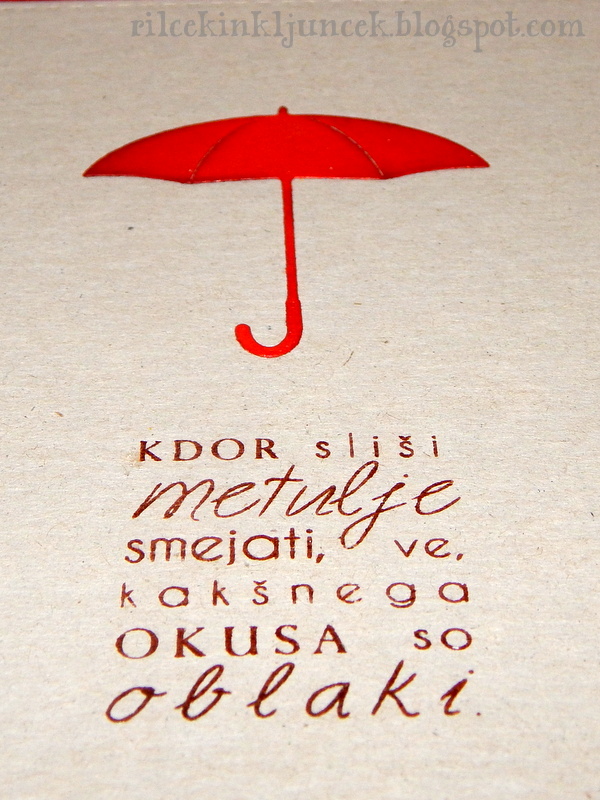 rilcekinkljuncek.blogspot.com
KDOR sliši
metulje
smejati, ve,
kakšnega
OKUSA so
oblaki.